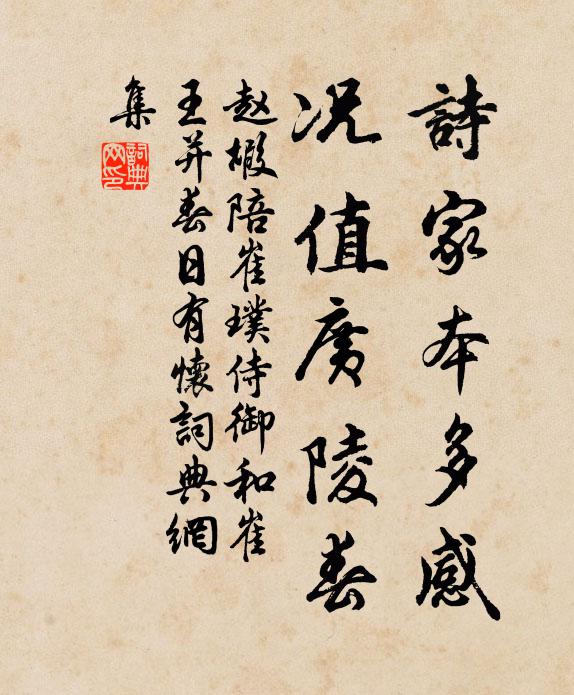 詩家本多感
况值廣陵春
赵嘏陪崔璞侍御和崔
王并春日有懷詞典網
集
詞典
网印